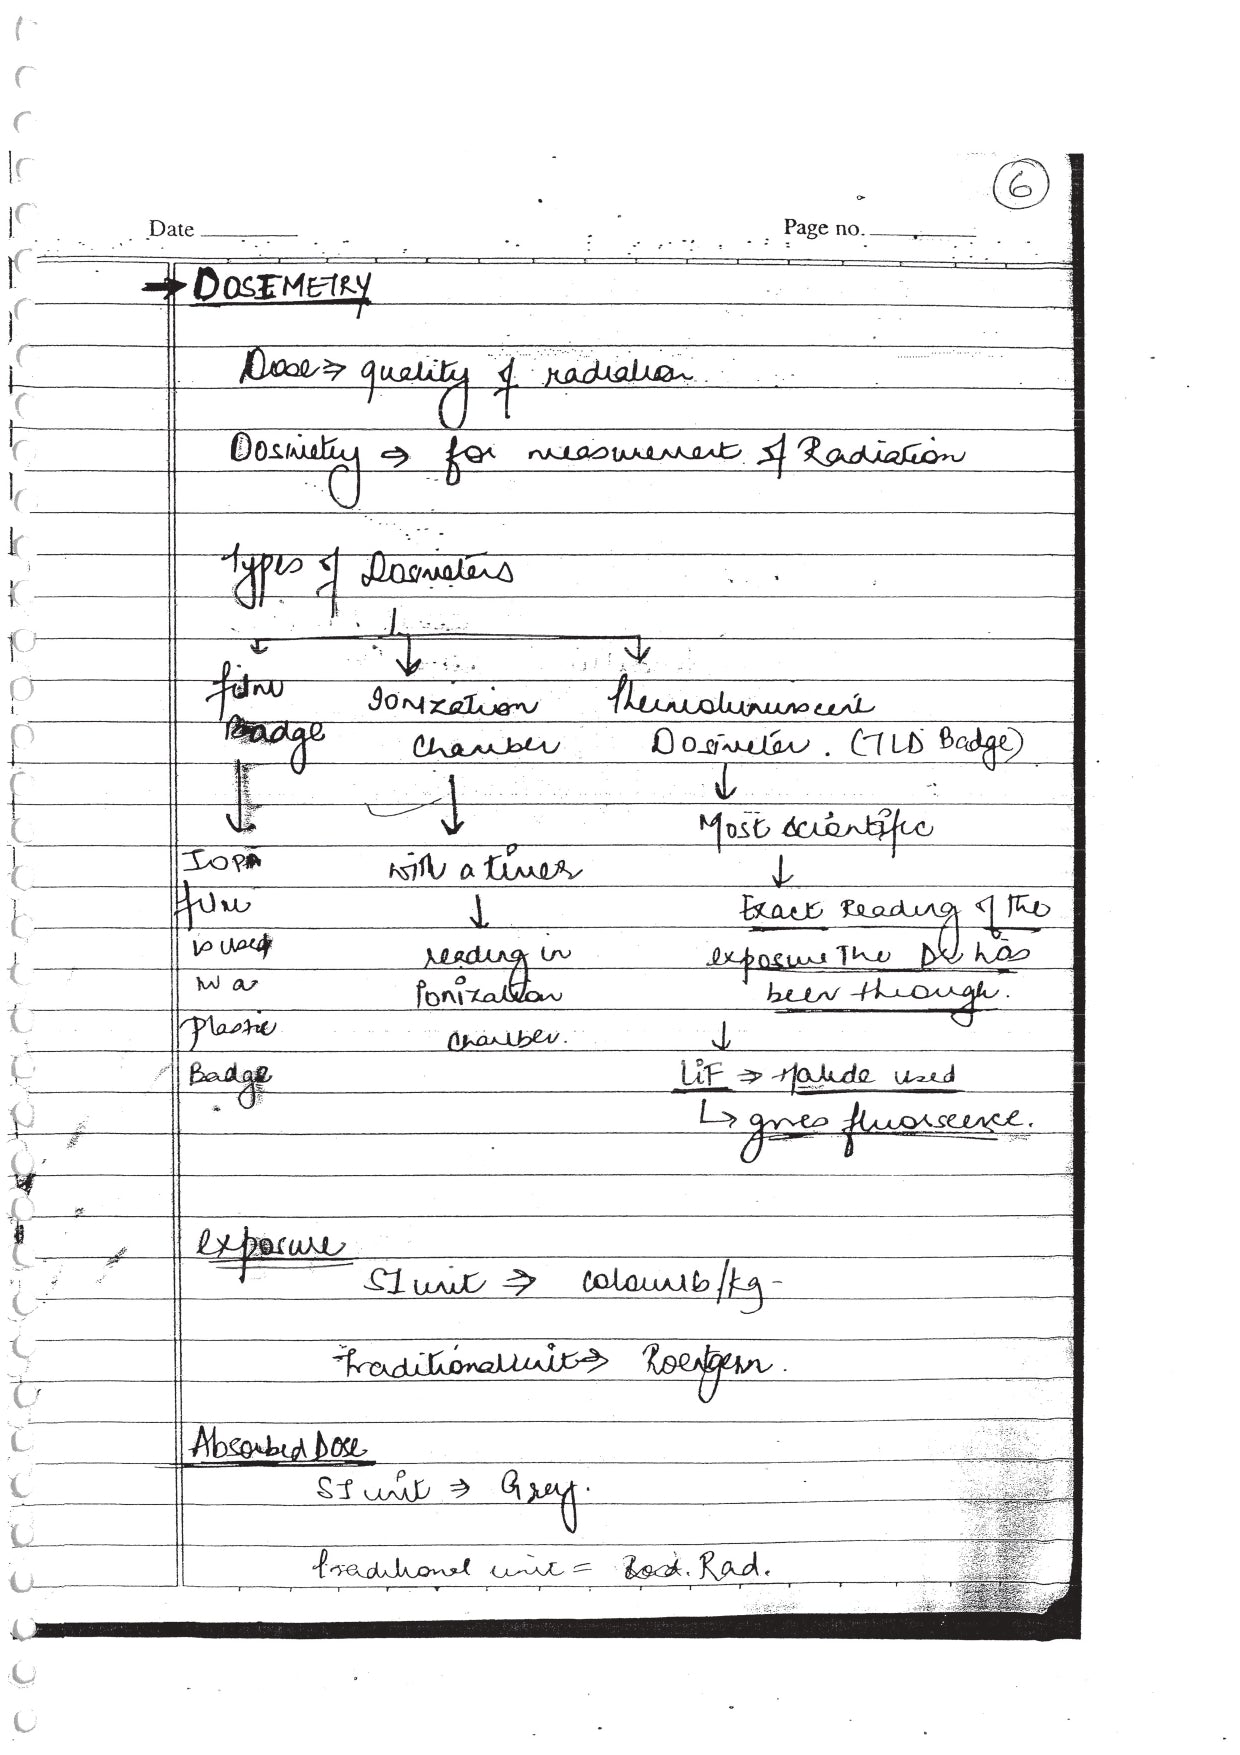 6
Date
Page no.
→ DOSEMETRY
Dose ⇒ quality of radiation
Dosimetry ⇒ for measurement of Radiation
Types of Dosimeters
film
Badge
Ionization
chamber
Thermoluminuscent
Dosimeter. (TLD Badge)
IOPA
film
is used
in a
plastic
Badge
with a timer
reading in
Ionization
chamber.
Most scientific
Exact Reading of the
exposure The Dr has
been through.
LiF ⇒ Halide used
↳ gives fluorscence.
exposure
SI unit ⇒ coloumb/kg-
Traditional unit ⇒ Roentgen.
Absorbed Dose
SI unit ⇒ Grey.
traditional unit = Rad.